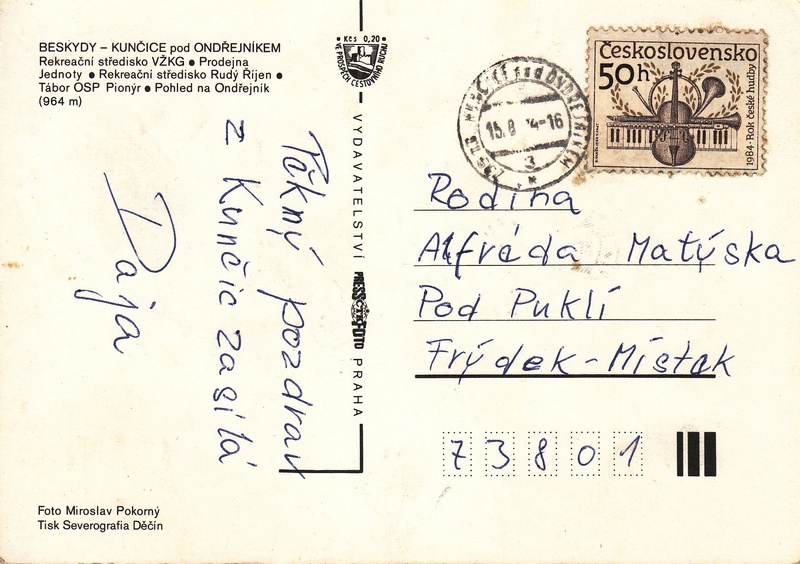 BESKYDY – KUNČICE pod ONDŘEJNÍKEM
Rekreační středisko VŽKG ● Prodejna
Jednoty ● Rekreační středisko Rudý Říjen ●
Tábor OSP Pionýr ● Pohled na Ondřejník
(964 m)
Kčs 0,20
VE PROSPĚCH CESTOVNÍHO RUCHU
Československo
50h
1984·Rok české hudby
POD ONDŘEJNÍKEM
15.8 4-16
3
VYDAVATELSTVÍ PRESSFOTO PRAHA
ČTK
Pěkný pozdrav
z Kunčic zasílá
Dája
Rodina
Alfréda Matýska
Pod Puklí
Frýdek-Místek
73801
Foto Miroslav Pokorný
Tisk Severografia Děčín